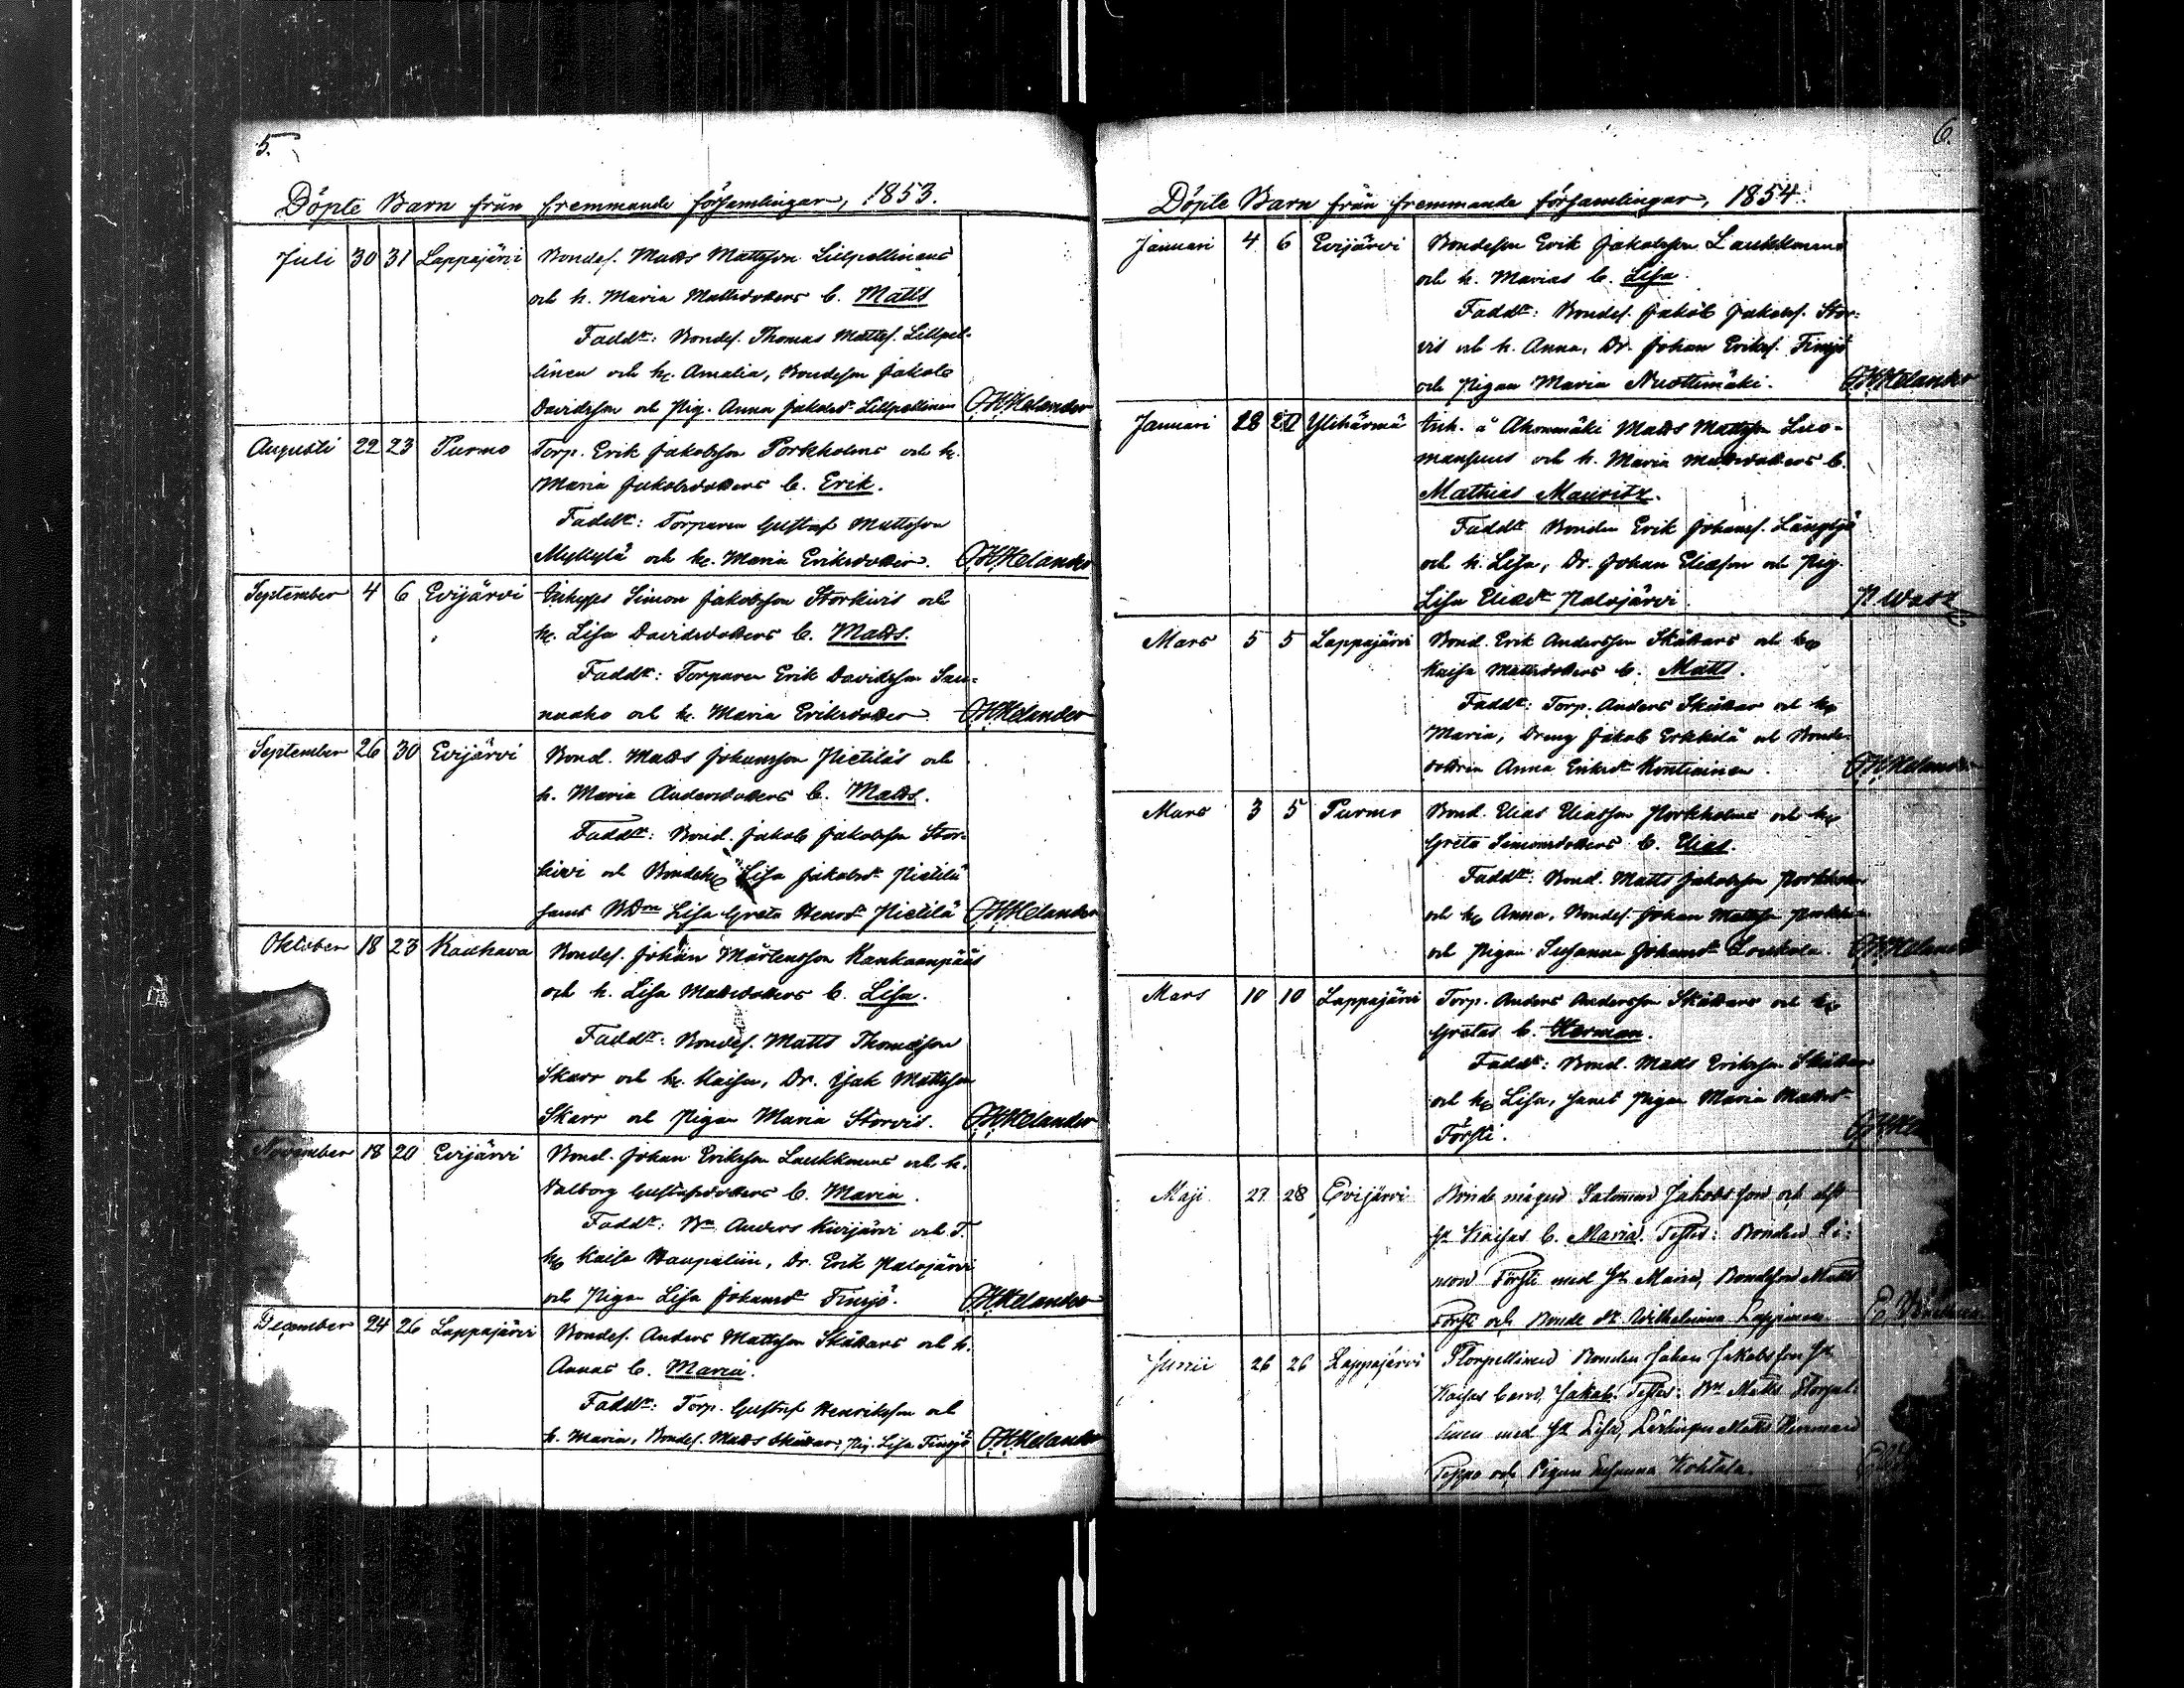 5.
Döpte Barn från fremmande församlingar, 1853.
Juli 30 31 Lappajärvi Bondes. Matts Mattsson Lillpellinens
och h. Maria Mattsdotters b. Matts
Faddr: Bondes. Thomas Mattss. Lillpel-
linen och h. Amalia, Bondeson Jakob
Davidsson och Pig. Anna Jakobsdr Lillpellinen OHHelander
Augusti 22 23 Purmo Torp. Erik Jakobsson Porkholms och h.
Maria Jakobsdotters b. Erik.
Faddr: Torparen Gustaf Mattsson
Myllylä och h. Maria Eriksdotter. OHHelander
September 4 6 Evijärvi Inhyses Simon Jakobsson Storkivis och
h. Lisa Davidsdotters b. Matts.
Faddr: Torparen Erik Davidsson Sau-
nuaho och h. Maria Eriksdotter. OHHelander
September 26 30 Evijärvi Bond. Matts Johansson Pietiläs och
h. Maria Andersdotters b. Matts.
Faddr: Bond. Jakob Jakobsson Stor-
kivi och Bondeh. Lisa Jakobsdr Pietilä
samt Lisa Greta Henrdr Pietilä OHHelander
Oktober 18 23 Kauhava Bondes. Johan Mårtensson Kankaanpääs
och h. Lisa Mattsdotters b. Lisa.
Faddr: Bondes. Matts Thomasson
Skarr och h. Kaisa, Dr. Isak Mattsson
Skarr och Pigan Maria Storvis. OHHelander
November 18 20 Evijärvi Bond. Johan Eriksson Laukkonens och h.
Valborg Gustafsdotters b. Maria.
Faddr: Bn Anders Kivijärvi och T.
h. Kaisa Haapaliin, Dr. Erik Palojärvi
och Pigan Lisa Johansdr Finsjö. OHHelander
December 24 26 Lappajärvi Bondes. Anders Mattsson Skåttars och h.
Annas b. Maria.
Faddr: Torp. Gustaf Henriksson och
h. Maria, Bondes. Matts Skåttar, Pig. Lisa Finsjö OHHelander
6.
Döpte Barn från fremmande församlingar, 1854.
Januari 4 6 Evijärvi Bondeson Erik Jakobsson Laukkonens
och h. Marias b. Lisa.
Faddr: Bondes. Jakob Jakobss. Stor-
vis och h. Anna, Dr. Johan Erikss. Finsjö
och Pigan Maria Nuottimäki. OHHelander
Januari 28 Ylihärmä Inh. å Ahonmäki Matts Mattsson Luo-
och h. Maria Mattsdotters b.
Mathias Mauritz.
Faddr Bonden Erik Johanss. Långsjö
och h. Lisa, Dr. Johan Eliasson och Pig.
Lisa Eliasdr Palojärvi.
Mars 5 5 Lappajärvi Bond. Erik Andersson Skåttars och h.
Kaisa Mattsdotters b. Matts.
Faddr: Torp. Anders Skåttar och h.
Maria, Dreng Jakob Erkkilä och Bonde-
dottren Anna Eriksdr Kontiainen. OHHelander
Mars 3 5 Purmo Bond. Elias Eliasson Porkholms och h.
Greta Simonsdotters b. Elias.
Faddr: Bond. Matts Jakobsson Porkholm
och h. Anna, Bondes. Johan Mattsson
och Pigan Susanna Johansdr OHHelander
Mars 10 10 Lappajärvi Torp. Anders Andersson Skåttars och h.
Gretas b. Herman.
Faddr: Bond. Matts Eriksson Skåttar
och h. Lisa, samt Pigan Maria Mattsdr
Försti.
Maji 27 28 Evijärvi Bonde mågen Salomon Jakobsson och dess
Hu Kaisas b. Maria. Testes: Bonden Si-
mon Försti med Hu Maria, Bondeson Matts
Försti och Bonde dr. Wilhelmina Lappinen.
Junii 26 26 Lappajärvi Storpellinen Bonden Johan Jakobsson Hu
Kaisas barn Jakob. Testes: Bn Matts Storpel-
linen med Hu Lisa, Lärlingen Matts Herman
Teppo och Pigan Susanna Kohtala.